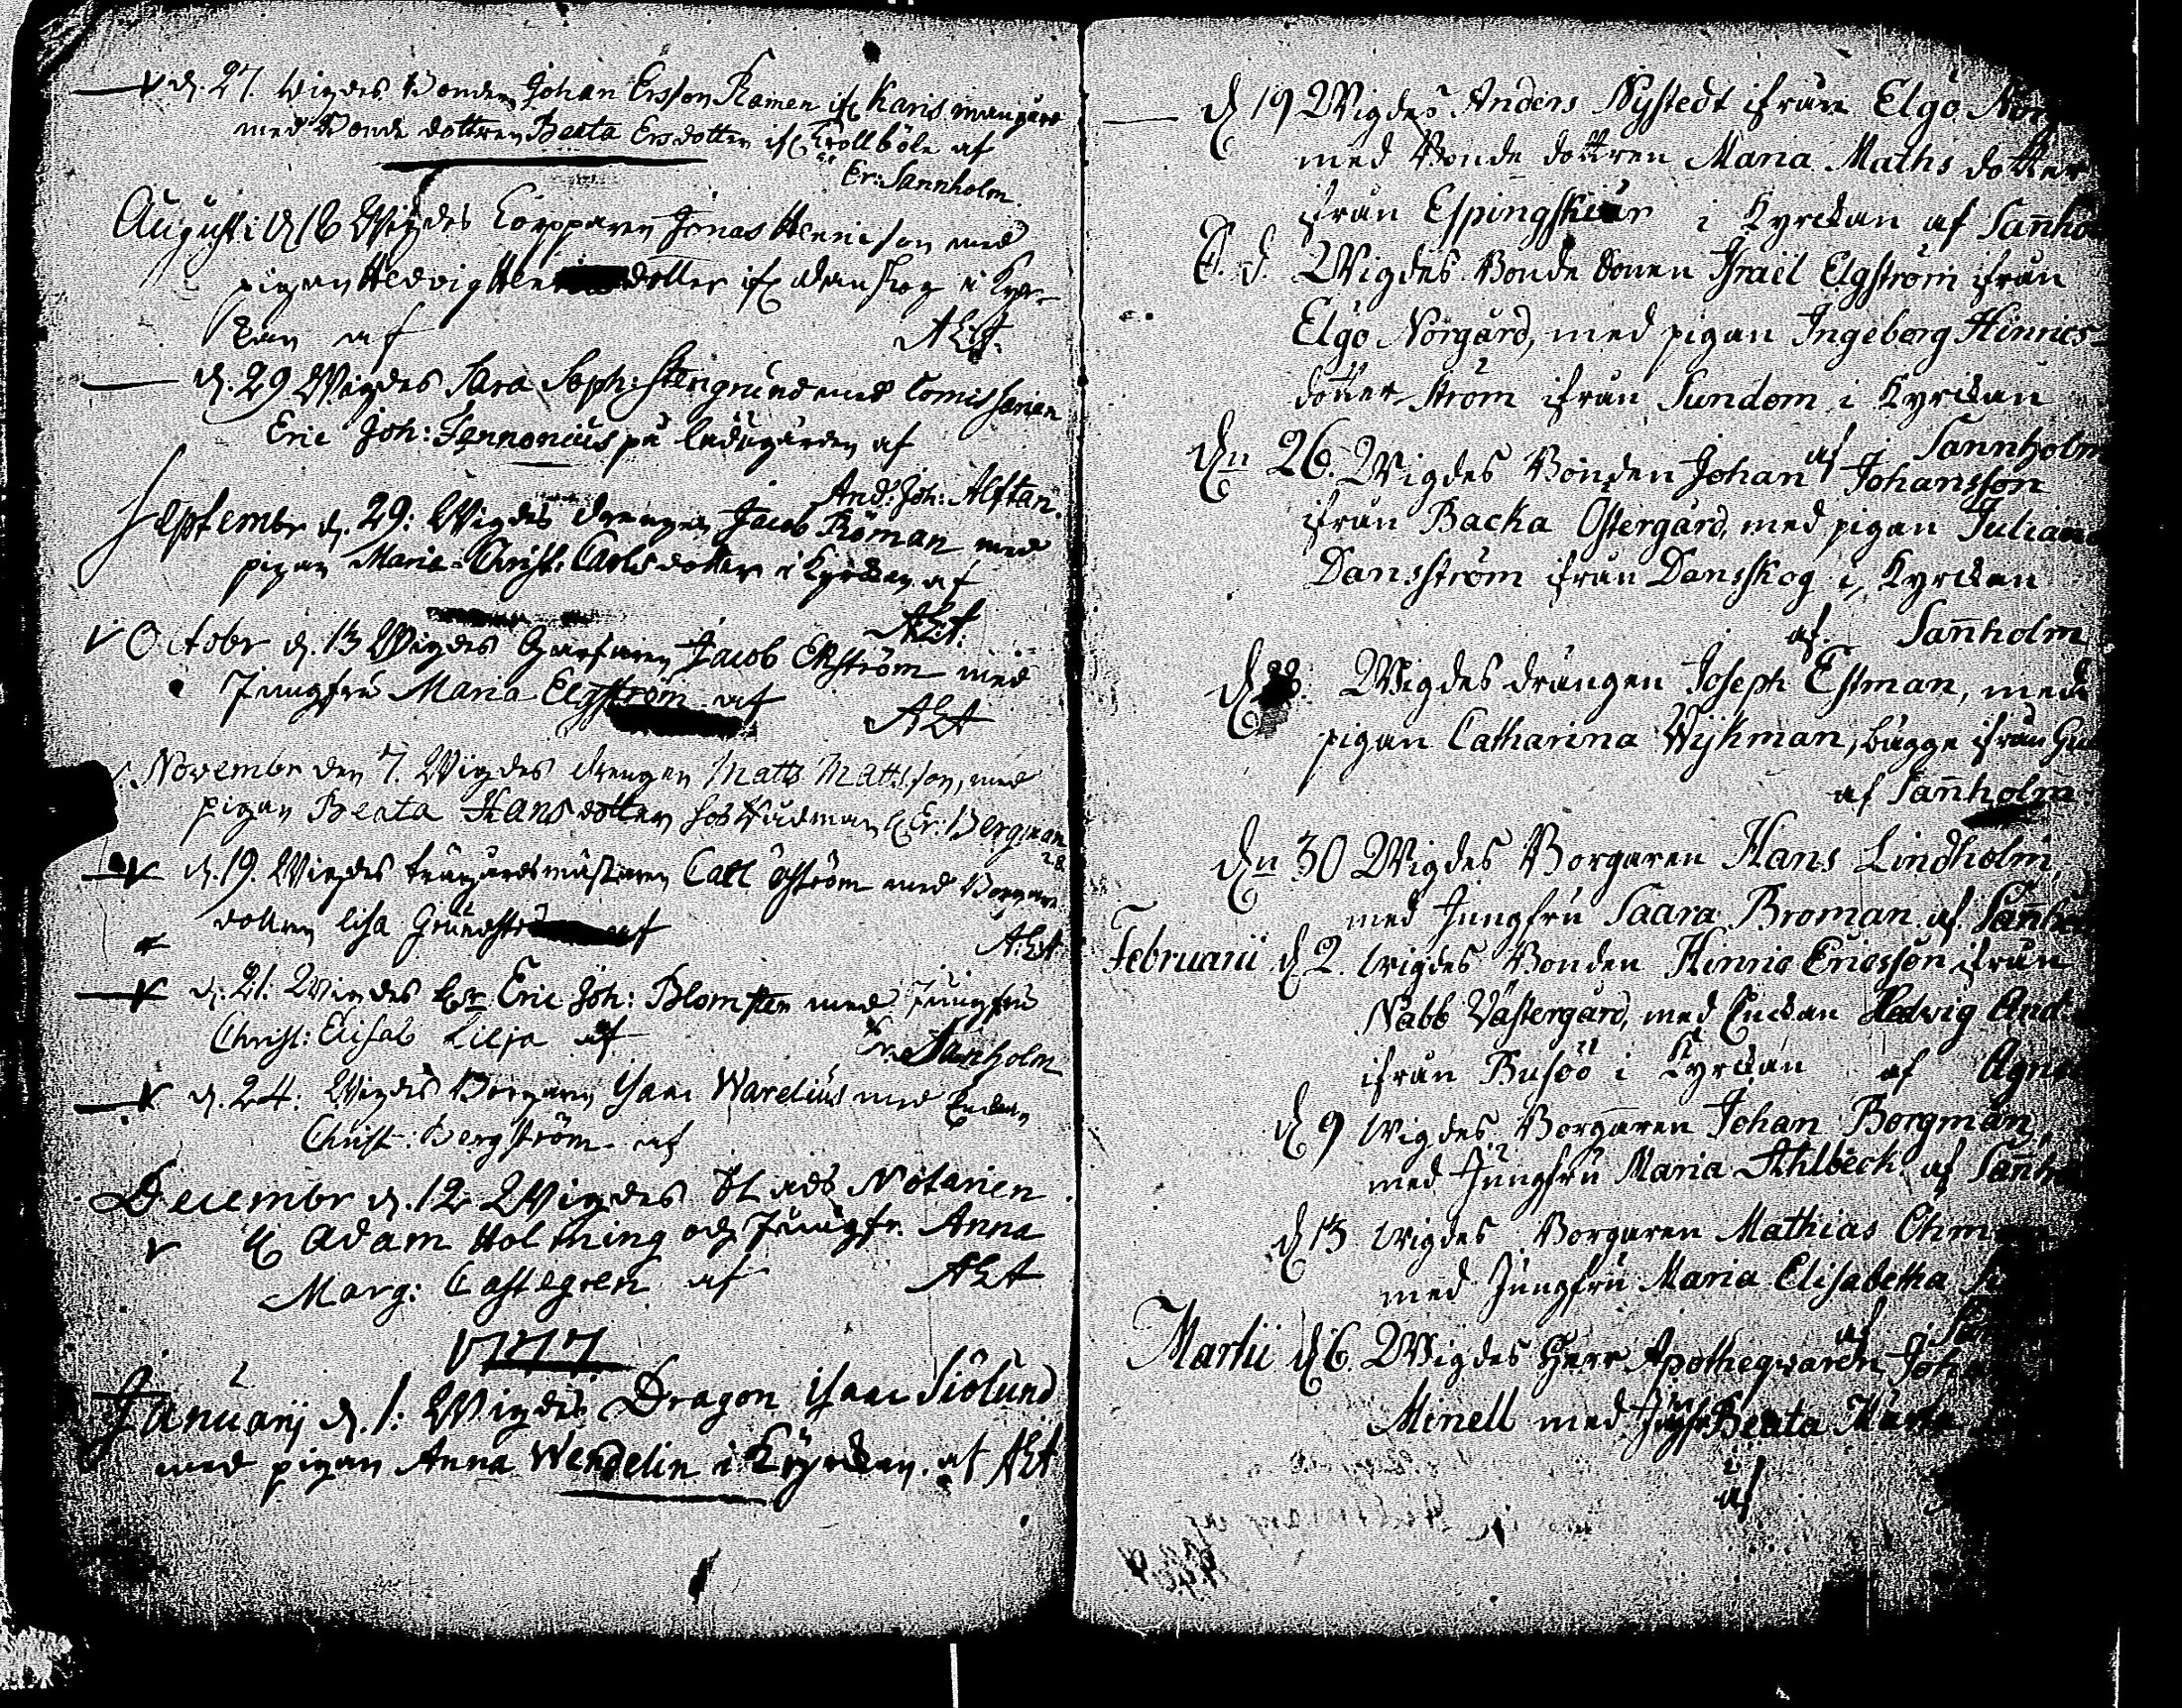 d. 27. Wigdes Bonden Johan Ersson Ramen ifr Karis
med Bonde dottren Beata Ersdotter ifr Trollböle af
Er: Sannholm.
Augusti d. 18 Wigdes Corpparen Jonas Henricson med
pigan Hedvig dotter ifr i Kyr-
kan af AEA.
d. 29 Wigdes Sara Soph: Stengrund med Comissarien
Eric Joh: på ladugården af
And: Joh: Alftan.
Septembr d. 29. Wigdes drengen Jacob Röman med
pigan Maria Christ: Carlsdotter i Kyrckan af
AEA.
Octobr d. 13 Wigdes Garfaren Jacob Ekström med
Jungfru Maria Elgström af AEA
Novembr den 7. Wigdes drengen Matts Mattsson, med
pigan Beata Hansdotter hos Er: Bergman
d. 19. Wigdes trägårdsmästaren Carl öström med Borgare
dottren lisa af AEA
d. 21. Wigdes Hr Eric Joh: Blomster med Jungfru
Christ: Elisab Lilja af Er. Sanholm
d. 24. Wigdes Borgaren Isaac Warelius med Enckan
Christ: Bergström af
Decembr d. 12 Wigdes Stads Notarien
Adam Holming och Jungfr. Anna
Marg: Castegren af AEA
1777
Januarij d. 1. Wigdes Dragon Isaac Siölund
med pigan Anna Wendelin i Kyrckan af AEA
d 19 Wigdes Anders Nystedt ifrån Elgö
med Bonde dottren Maria Maths dotter
ifrån Espingskiär i Kyrckan af
S. d. Wigdes Bonde Sonen Israël Elgström ifrån
Elgö Norgård, med pigan Ingeborg Hinrics-
dotter ström ifrån Sundom i Kyrckan
af Sannholm
dn 26. Wigdes Bonden Johan Johansson
ifrån Backa Östergård, med pigan
Dansström ifrån Dansskog i Kyrckan
af. Sannholm
d 28. Wigdes drängen Joseph Estman, med
pigan Catharina Wijkman, bägge ifrån
af Sannholm
dn 30 Wigdes Borgaren Hans Lindholm,
med Jungfru Saara Broman af
Februarii d 2. wigdes Bonden Hinric Ericsson ifrån
Nabb Västergård, med Enckan Hedvig
ifrån Busöö i Kyrckan af
d 9 wigdes Borgaren Johan Borgman,
med Jungfru Maria Ahlbeck af
d 13 wigdes Borgaren Mathias
med Jungfru Maria Elisabetha
af
Martii d 6 Wigdes Herr Apothequaren
Minell med Jungfr Beata
af